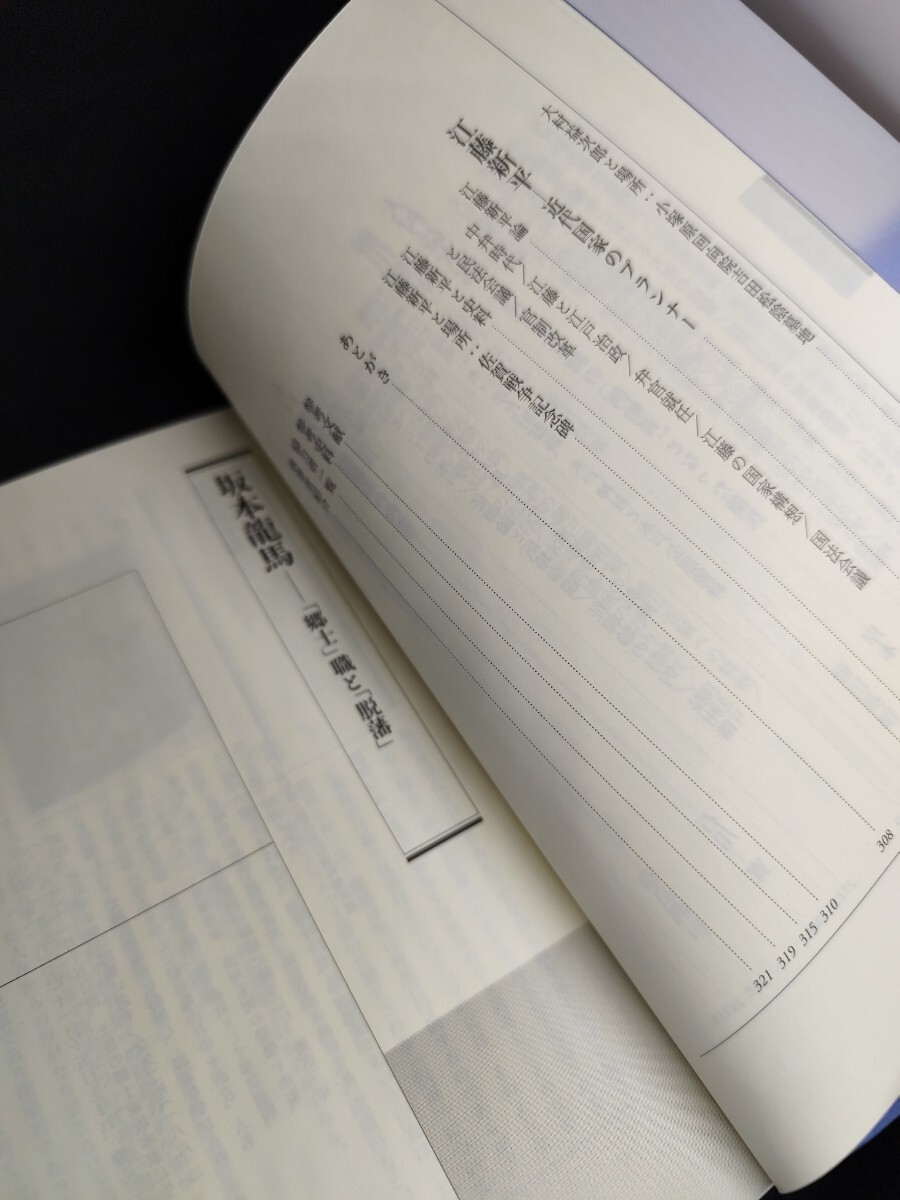 大村益次郎と場所：小塚原回向院吉田松陰墓地
江藤新平 近代国家のプランナー
江藤新平論
中弁時代／江藤と江戸治政／弁官就任／江藤の国家構想／国法会議
と民法会議／官制改革
江藤新平と史料
江藤新平と場所：佐賀戦争記念碑
308
あとがき
310
参考文献
315
319
321
坂本龍馬―「郷士」職と「脱藩」